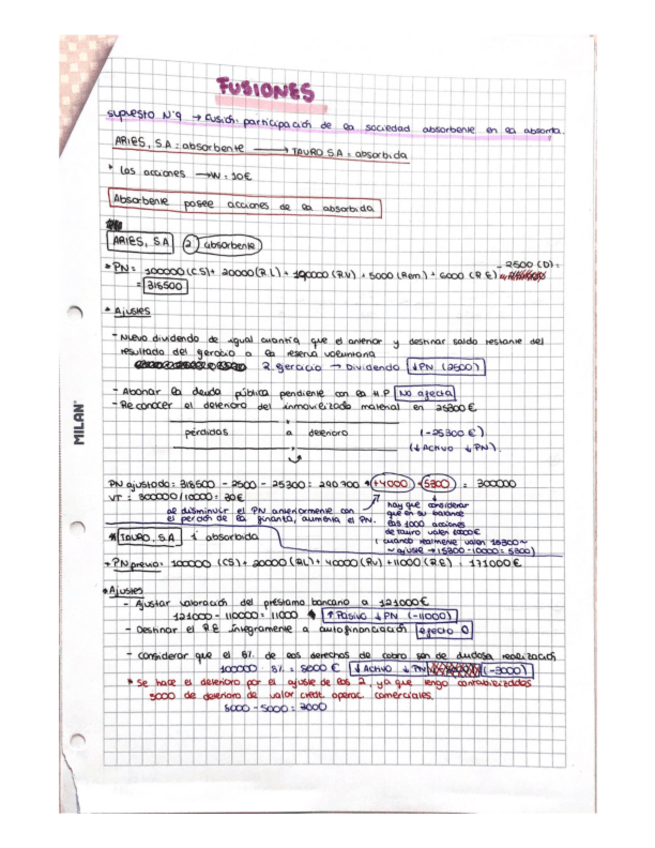 FUSIONES
supuesto Nº9 → Fusión: participación de la sociedad absorbente en la absorta.
ARIES, S.A : absorbente → TAURO SA : absorbida
* Las acciones → VN = 10€
Absorbente posee acciones de la absorbida
ARIES, S.A 2 absorbente
- 2500 (D) =
* PN = 100000 (CS) + 20000 (RL) + (RV) + 5000 (Rem.) + 6000 (R.E)
= 318500
* Ajustes
- Nuevo dividendo de igual cuantía que el anterior y destinar saldo restante del
resultado del ejercicio a la reserva voluntaria
R. ejercicio → Dividendo ↓PN (2500)
- Abonar la deuda pública pendiente con la H.P No afecta
- Reconocer el deterioro del inmovilizado material en 25300€
pérdidas a deterioro (-25300 €)
(↓Activo ↓PN).
PN ajustado = 318500 - 2500 - 25300 = 290700 + +4000 + 5300 = 300000
VT = 300000/10000 = 30€
al disminuir el PN anteriormente con
el perdón de la finanta, aumenta el PN.
hay que considerar
que en su balance
las 1000 acciones
de tauro valen 10000€
(cuando realmente valen 15300 ~
~ ajuste → 15300 - 10000 = 5300)
* TAURO, S.A 1 absorbida
* PN previo = 100000 (CS) + 20000 (RL) + 40000 (RV) + 11000 (R.E) = 171000€
* Ajustes
- Ajustar valoración del préstamo bancario a 121000€
121000 - 110000 = 11000 ↑ Pasivo ↓ PN (-11000)
- Destinar el R.E íntegramente a autofinanciación efecto 0
- considerar que el 8% de los derechos de cobro son de dudosa realización
100000 · 8% = 8000€ ↓ Activo ↓ PN (-3000)
* Se hace el deterioro por el ajuste de los 2, ya que tengo contabilizados
5000 de deterioro de valor créd. operac. comerciales.
8000 - 5000 = 3000
MILAN